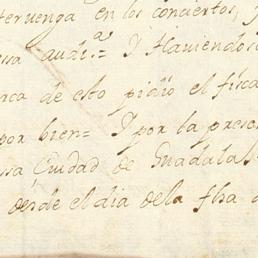 tervenga en los conciertos, y
ssa audi.ª = Y Haviendos
aca de esto pidio el fisca
por bien = Y por la presen
ssa Ciudad de Guadalax
desde el dia dela fha